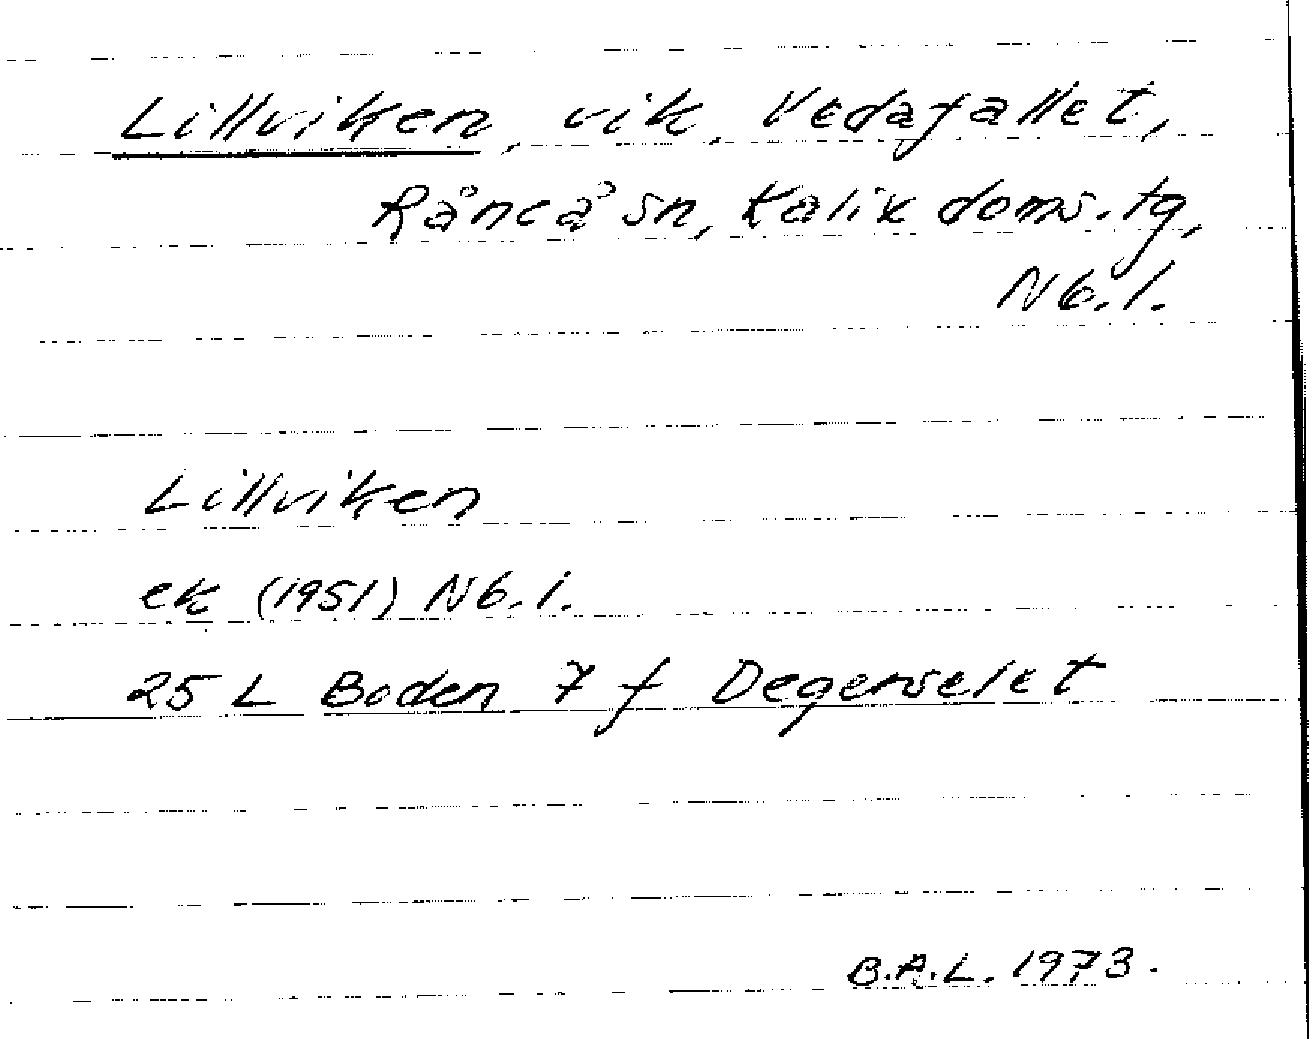 Lillviken, vik, Vedafallet,
Råneå sn, Kalix doms. tg,
Nb. l.
Lillviken
ek (1951) Nb. l.
25 L Boden 7 f Degerselet
B.A.L. 1973.